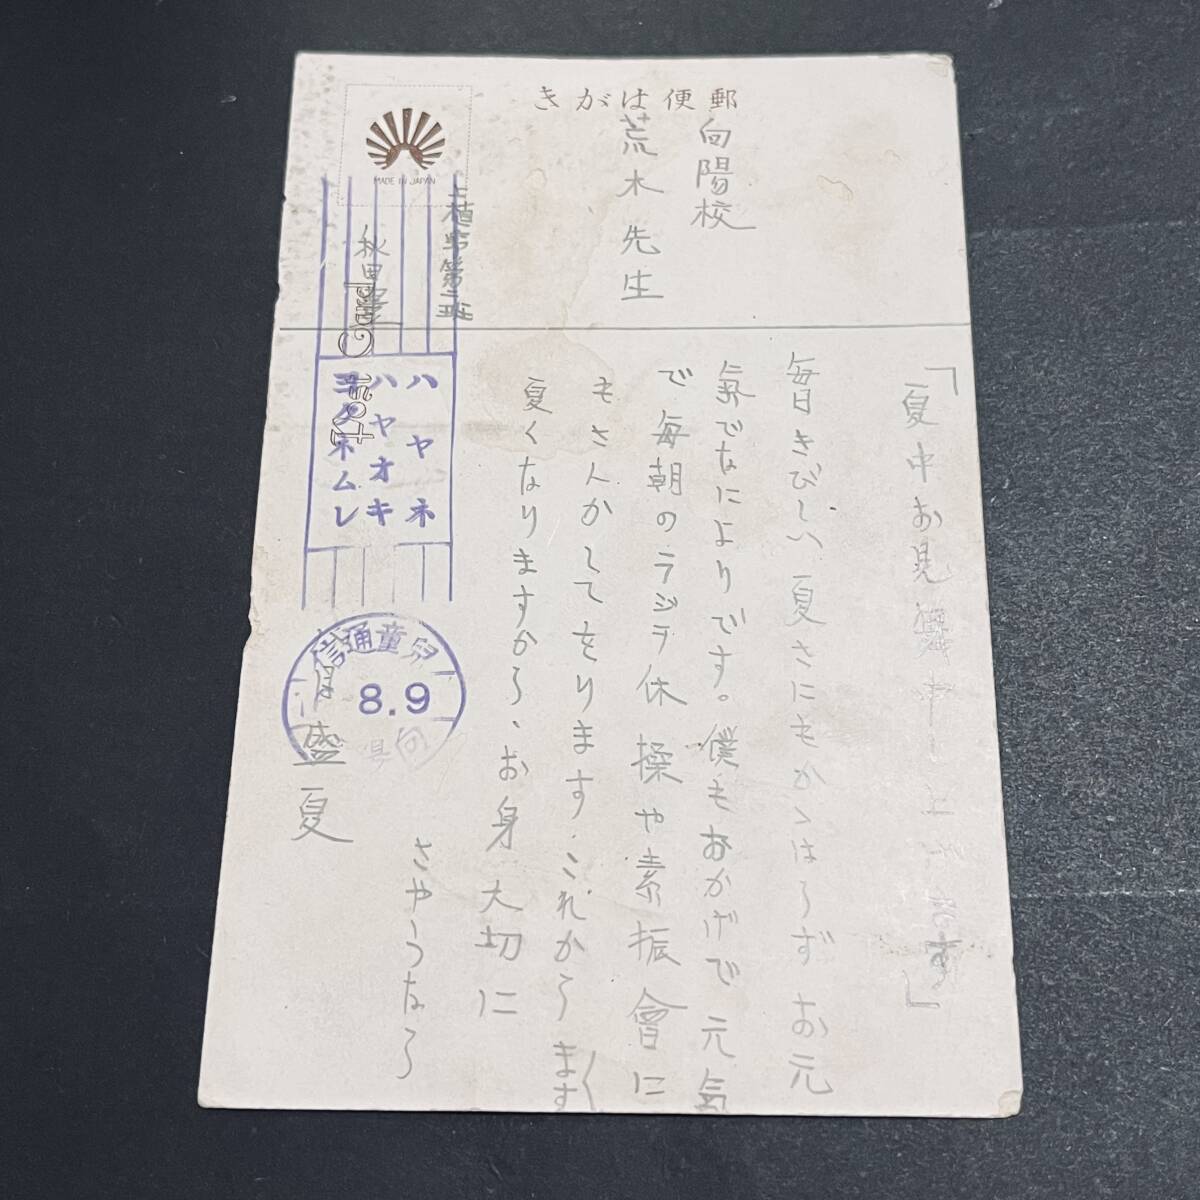 きがは便郵
向陽校
荒木先生
上植野第二班
秋田
MADE IN JAPAN
Post Card
ハヤネ
ハヤオキ
ヨクネムレ
信通童兒
8.9
「夏中お見舞申し上げます」
毎日きびしい夏さにもかゝはらずお元
氣でなによりです。僕もおかげで元氣
で毎朝のラジヲ体操や素振會に
もさんかしてをります、これからます〱
夏くなりますから、お身大切に
さやうなら
盛夏